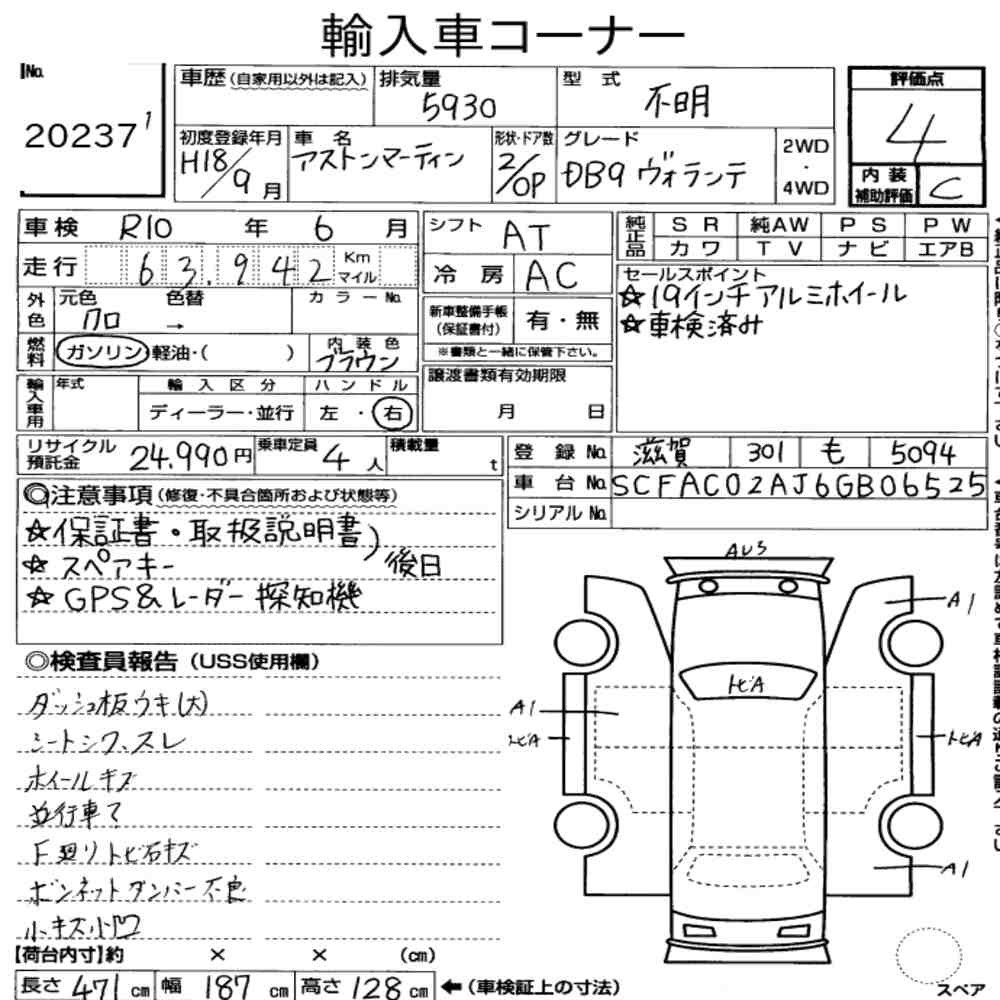 輸入車コーナー
No.
20237 1
車歴(自家用以外は記入) 排気量 5930 型式 不明 評価点 4
初度登録年月 H18/9月 車名 アストンマーティン 形状・ドア数 2/OP グレード DB9 ヴォランテ 2WD・4WD
内装補助評価 C
車検 R10年 6月 シフト AT 純正品 SR 純AW PS PW
カワ TV ナビ エアB
走行 63.942 Km マイル 冷房 AC セールスポイント
☆19インチアルミホイール
☆車検済み
外色 元色 クロ 色替 → カラーNo.
新車整備手帳(保証書付) 有・無
※書類と一緒に保管下さい。
燃料 ガソリン 軽油・( ) 内装色 ブラウン
譲渡書類有効期限
月 日
輸入車用 年式 輸入区分 ハンドル
ディーラー・並行 左・右
リサイクル預託金 24.990円 乗車定員 4人 積載量 t
登録No. 滋賀 301 も 5094
車台No. SCFAC02AJ6GB06525
シリアルNo.
◎注意事項(修復・不具合箇所および状態等)
☆保証書・取扱説明書)
☆スペアキー 後日
☆GPS&レーダー探知機
◎検査員報告(USS使用欄)
ダッシュ板ウキ(大)
シートシワ、スレ
ホイールキズ
並行車て
F廻りトビ石キズ
ボンネットダンパー不良
小キズ小凹
AUS
A1
トビA
A1
トビA
トビA
A1
【荷台内寸】約 × × (cm)
長さ 471 cm 幅 187 cm 高さ 128 cm ←(車検証上の寸法)
スペア